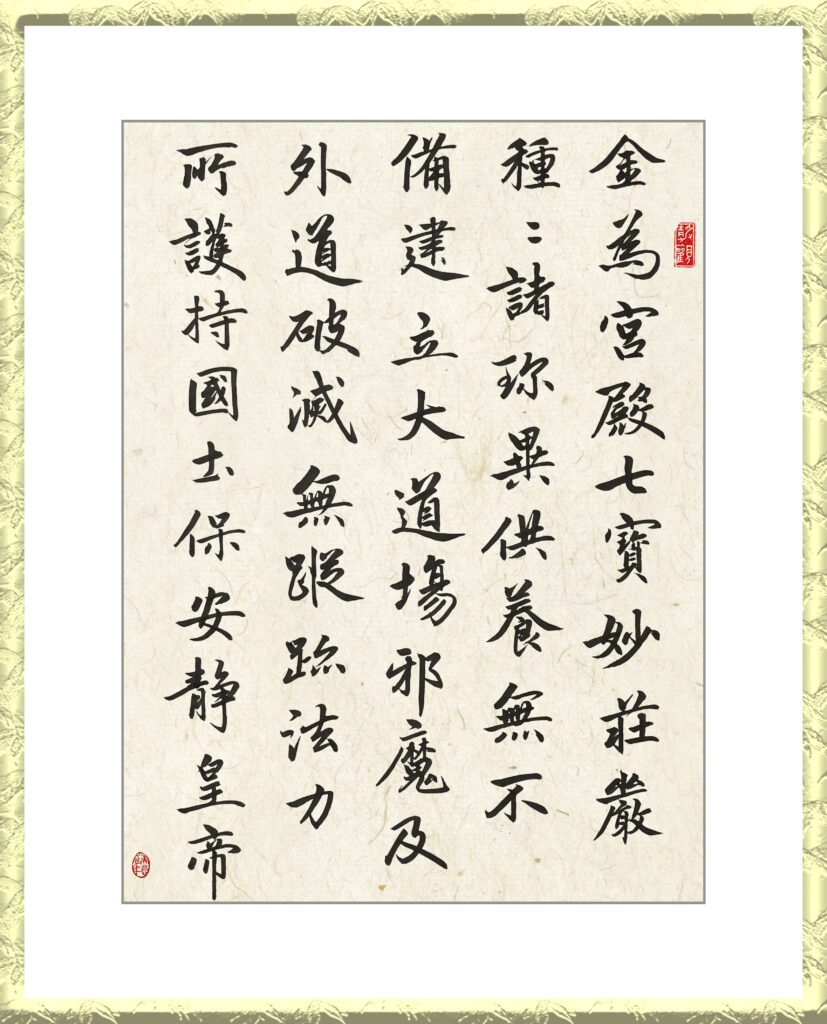 金為宮殿七寳妙莊嚴
種〻諸珎異供養無不
備建立大道場邪魔及
外道破滅無蹤跡法力
所護持國土保安静皇帝